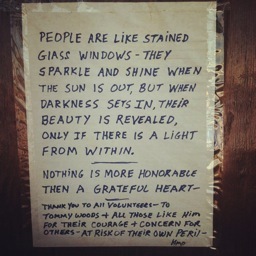 PEOPLE ARE LIKE STAINED
GLASS WINDOWS - THEY
SPARKLE AND SHINE WHEN
THE SUN IS OUT, BUT WHEN
DARKNESS SETS IN, THEIR
BEAUTY IS REVEALED,
ONLY IF THERE IS A LIGHT
FROM WITHIN.
NOTHING IS MORE HONORABLE
THEN A GRATEFUL HEART-
THANK YOU TO All VOLUNTEERS- TO
TOMMY WOODS + All THOSE LIKE HIM
FOR THEIR COURAGE + CONCERN FOR
OTHERS - AT RISK OF THEIR OWN PERIL-